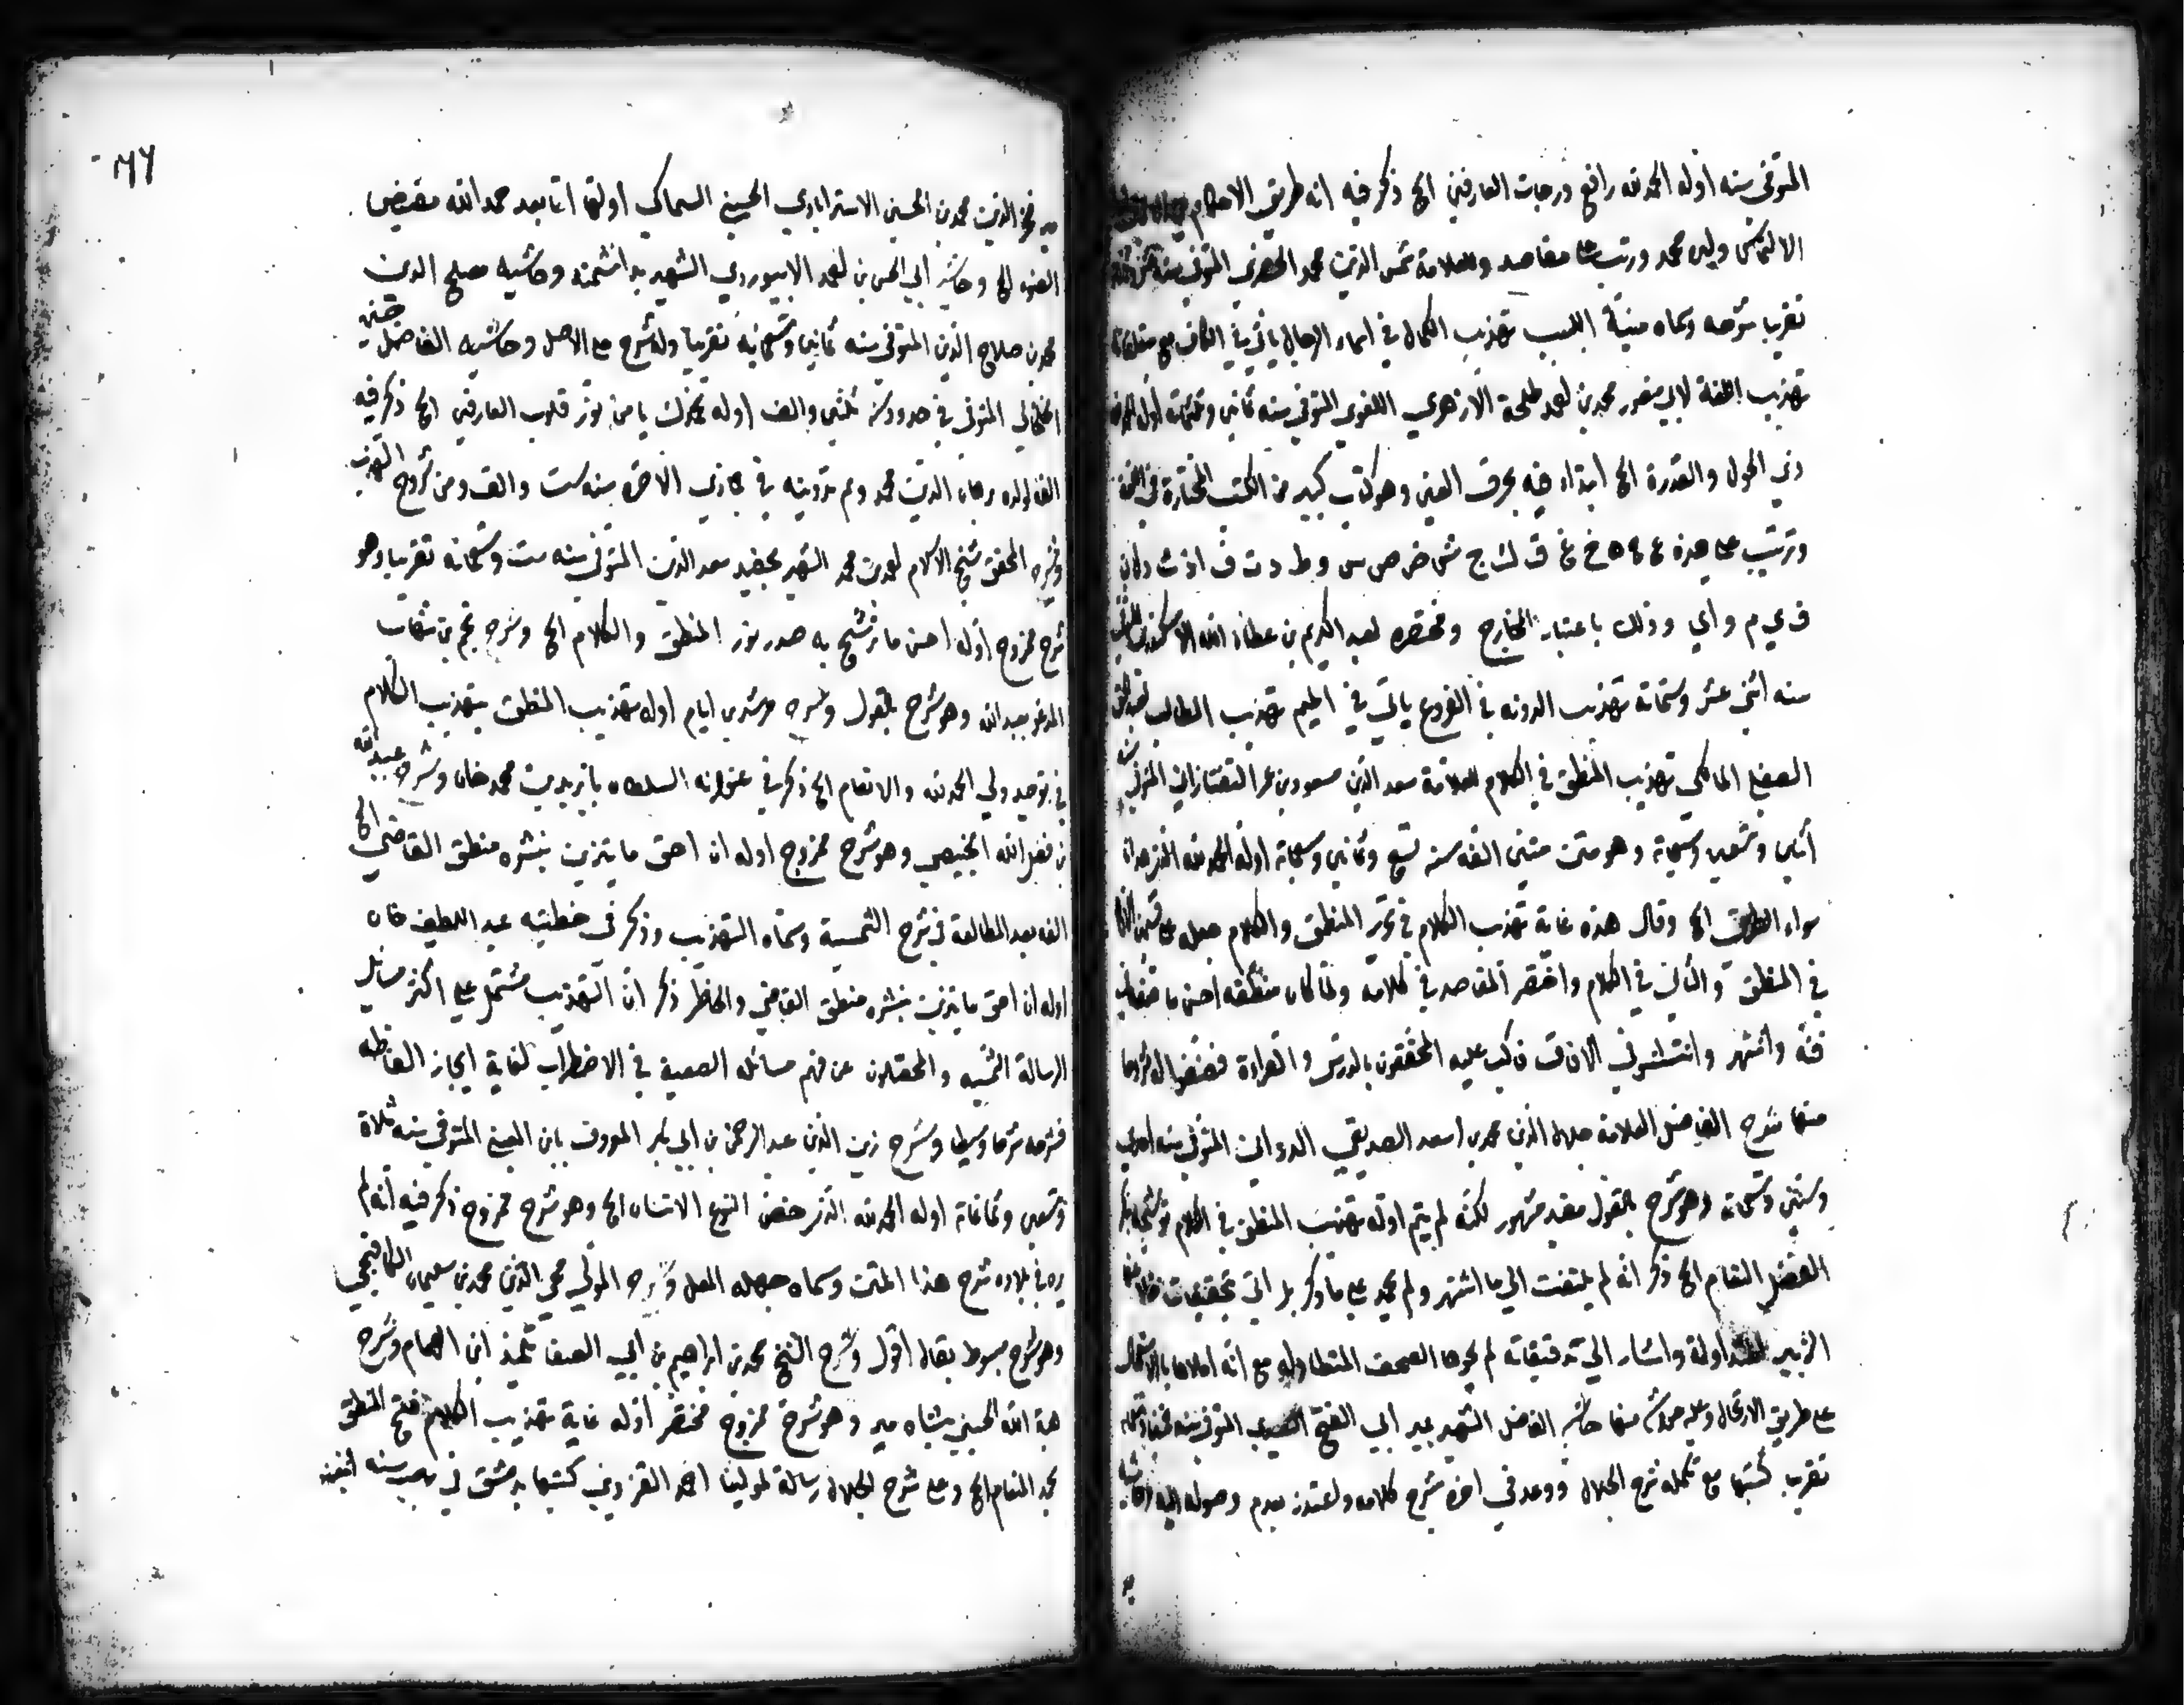 المتوفى سنه اوله الحمد لله رافع درجات العارفين الخ ذكر فيه انه طريق الاحكام
الالتماس ولد محمد ورتب على مقاصد وللعلامة شمس الدين محمد الخضري المتوفى سنه
تقريبا شرحه وسماه منية اللبيب تهذيب الكمال في اسماء الرجال ياتي في الكاف مع متعلقاته
تهذيب اللغة لابي منصور محمد بن احمد طلحة الازهري اللغوي المتوفى سنه ثمانين وثلثمائة اوله الحمد لله
ذي الحول والقدرة الخ ابتداء فيه بحرف العين وهو كتاب كبير من الكتب المختارة في اللغة
وترتيب على هذه ع ح ه خ غ ق ك ج ش ض ص س و ط د ت ف ا ذ ث ر ل ن
ف ي م و اي و ذلك باعتبار المخارج ومختصره لعبد الكريم بن عطاء الله الاسكندري المتوفى
سنه اثنى عشر وستمائة تهذيب المدونه في الفروع ياتي في الميم تهذيب المطالب لعبد الحق
الصقلي المالكي تهذيب المنطق في الكلام للعلامة سعد الدين مسعود بن عمر التفتازاني المتوفى سنه
اثنين وتسعين وسبعمائة وهو متن متين الفه سنة تسع وثمانين وسبعمائة اوله الحمد لله الذي هدانا
سواء الطريق الخ وقال هذه غاية تهذيب الكلام في تحرير المنطق والكلام جعله على قسمين الاول
في المنطق والثاني في الكلام واختصر المقاصد في كلامه ولما كان منطقه احسن ما صنف في
فنه واشتهر وانتشر في الافاق فاكب عليه المحققون بالدرس والقراءة فصنفوا له شروحا
منها شرح الفاضل العلامة جلال الدين محمد بن اسعد الصديقي الدواني المتوفى سنه
وستين وتسعمائة وهو شرح بالقول مفيد مشهور لكنه لم يتم اوله تهذيب المنطق في الكلام توشيحه بذكر
المفضل المنعام الخ ذكر انه لم يلتفت الى ما اشتهر ولم يجمد على ما ذكر بل اتى بتحقيقات خلا عنها
الزبر المتداولة واشار الى تدقيقات لم يحوها الصحف المتطاوله مع انه املاها بالاستعجال
على طريق الارتجال وعليه حواشي منها حاشية الفاضل الشهير بمير ابي الفتح السعيدي المتوفى سنه
تقريبا كتبها مع تكمله شرح الجلال ووعد في اخره شرح كلامه واعتذر بعدم وصوله اليه وحاشيه
مير
١٧٦
مير فخر الدين محمد بن الحسين الاسترابادي الحسيني السماكي اولها اما بعد حمد الله مفيض
الضوء الخ وحاشية ابي الحسن بن احمد الابيوردي الشهير بدانشمند وحاشيه مصلح الدين
محمد بن صلاح الدين المتوفى سنه ثمانين وتسعمايه تقريبا وله شرح على الاصل وحاشيه الفاضل حسين
الخلخالي المتوفى في حدود سنه ثلثين والف اوله نحمدك يا من نور قلوب العارفين الخ ذكر فيه
الفه لولده برهان الدين محمد وتم تدوينه في جمادى الاخره سنه ست والف ومن شروح التهذيب
شرح المحقق شيخ الاسلام احمد بن محمد الشهير بحفيد سعد الدين المتوفى سنه ست وتسعمائه تقريبا وهو
شرح ممزوج اوله احسن ما ترشح به صدر نور المنطق والكلام الخ وشرح نجم بن شهاب
المدعو بعبد الله وهو شرح بالقول وشرح مرشد بن ايام اوله تهذيب المنطق بتهذيب الكلام
في توحيد ولي الحمد لله والانعام الخ ذكر في عنوانه السلطان بايزيد بن محمد خان وشرح عبيد الله
بن فضل الله الخبيصي وهو شرح ممزوج اوله ان احق ما يتزين بنشره منطق القاضي الخ
الفه بعد المطالعة في شرح الشمسية وسماه التهذيب وذكر في خطبته عبد اللطيف خان
اوله ان احق ما يتزين بنشره منطق القاضي والخاطر ذكر ان التهذيب مشتمل على اكثر مسائل
الرسالة الشمسيه والمحصلون عن فهم مسائله الصعبة في الاضطراب لغاية ايجاز الفاظه
فشرحه شرحا وسيطا وشرح زين الدين عبد الرحمن بن ابي بكر المعروف بابن العيني المتوفى سنه ثلاث
وتسعين وثمانمائة اوله الحمد لله الذي خصص النوع الانسان الخ وهو شرح ممزوج ذكر فيه انه لم
يره في بلاده شرح هذا المتن وسماه جهد المقل وشرح المولى محي الدين محمد بن سليمان الكافيجي
وهو شرح مبسوط بقال اقول وشرح الشيخ محمد بن ابراهيم بن ابي الصفا تلميذ ابن الهمام وشرح
هبة الله الحسيني بشاه مير وهو شرح ممزوج مختصر اوله غاية تهذيب الكلام فتح المنطق
بحمد المنعام الخ وعلى شرح الجلال رسالة لمولينا احمد القزويني كتبها بدمشق في رجب سنه